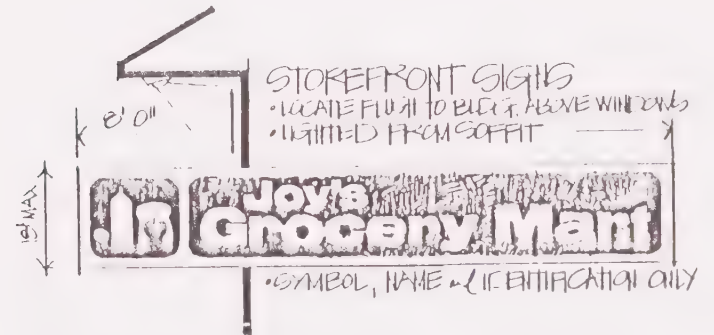 STOREFRONT SIGNS
• LOCATE FLUSH TO BLDG. ABOVE WINDOWS
• LIGHTED FROM SOFFIT
8' 0"
18" MAX
Joy's
Grocery Mart
• SYMBOL, NAME & IDENTIFICATION ONLY